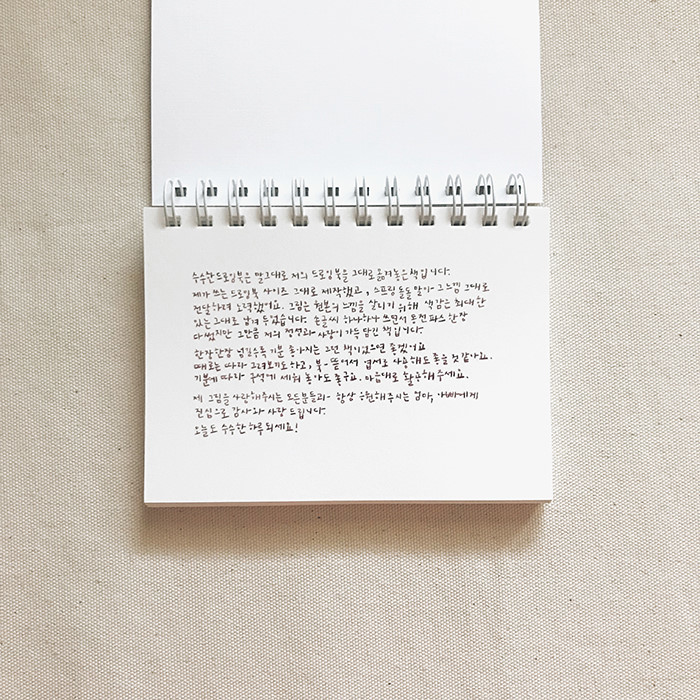 수수한드로잉북은 말그대로 저의 드로잉북을 그대로 옮겨놓은 책입니다.
제가 쓰는 드로잉북 사이즈 그대로 제작했고, 스프링 돌돌말이 그 느낌 그대로
전달하려 노력했어요. 그림은 원본의 느낌을 살리기 위해 색감은 최대한
있는 그대로 남겨 두었습니다. 손글씨 하나하나 쓰면서 온전
다 썼지만 그만큼 저의 정성과 사랑이 가득 담긴 책입니다.
한장한장 넘길수록 기분 좋아지는 그런 책이었으면 좋겠어요
때로는 따라 그려보기도 하고, 북- 뜯어서 엽서로 사용해도 좋을 것 같아요.
기분에 따라 구석에 세워 놓아도 좋구요. 마음대로 활용해주세요.
제 그림을 사랑해주시는 모든분들과 항상 응원해주시는 엄마, 아빠에게
진심으로 감사와 사랑 드립니다.
오늘도 수수한 하루 되세요!